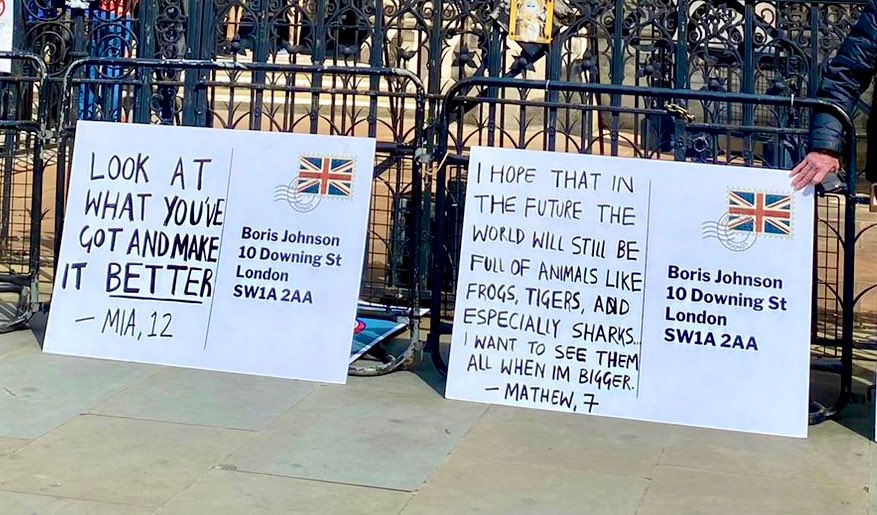 LOOK AT
WHAT YOU'VE
GOT AND MAKE
IT BETTER
— MIA, 12
Boris Johnson
10 Downing St
London
SW1A 2AA
I HOPE THAT IN
THE FUTURE THE
WORLD WILL STILL BE
FULL OF ANIMALS LIKE
FROGS, TIGERS, AND
ESPECIALLY SHARKS...
I WANT TO SEE THEM
ALL WHEN IM BIGGER.
— MATHEW, 7
Boris Johnson
10 Downing St
London
SW1A 2AA